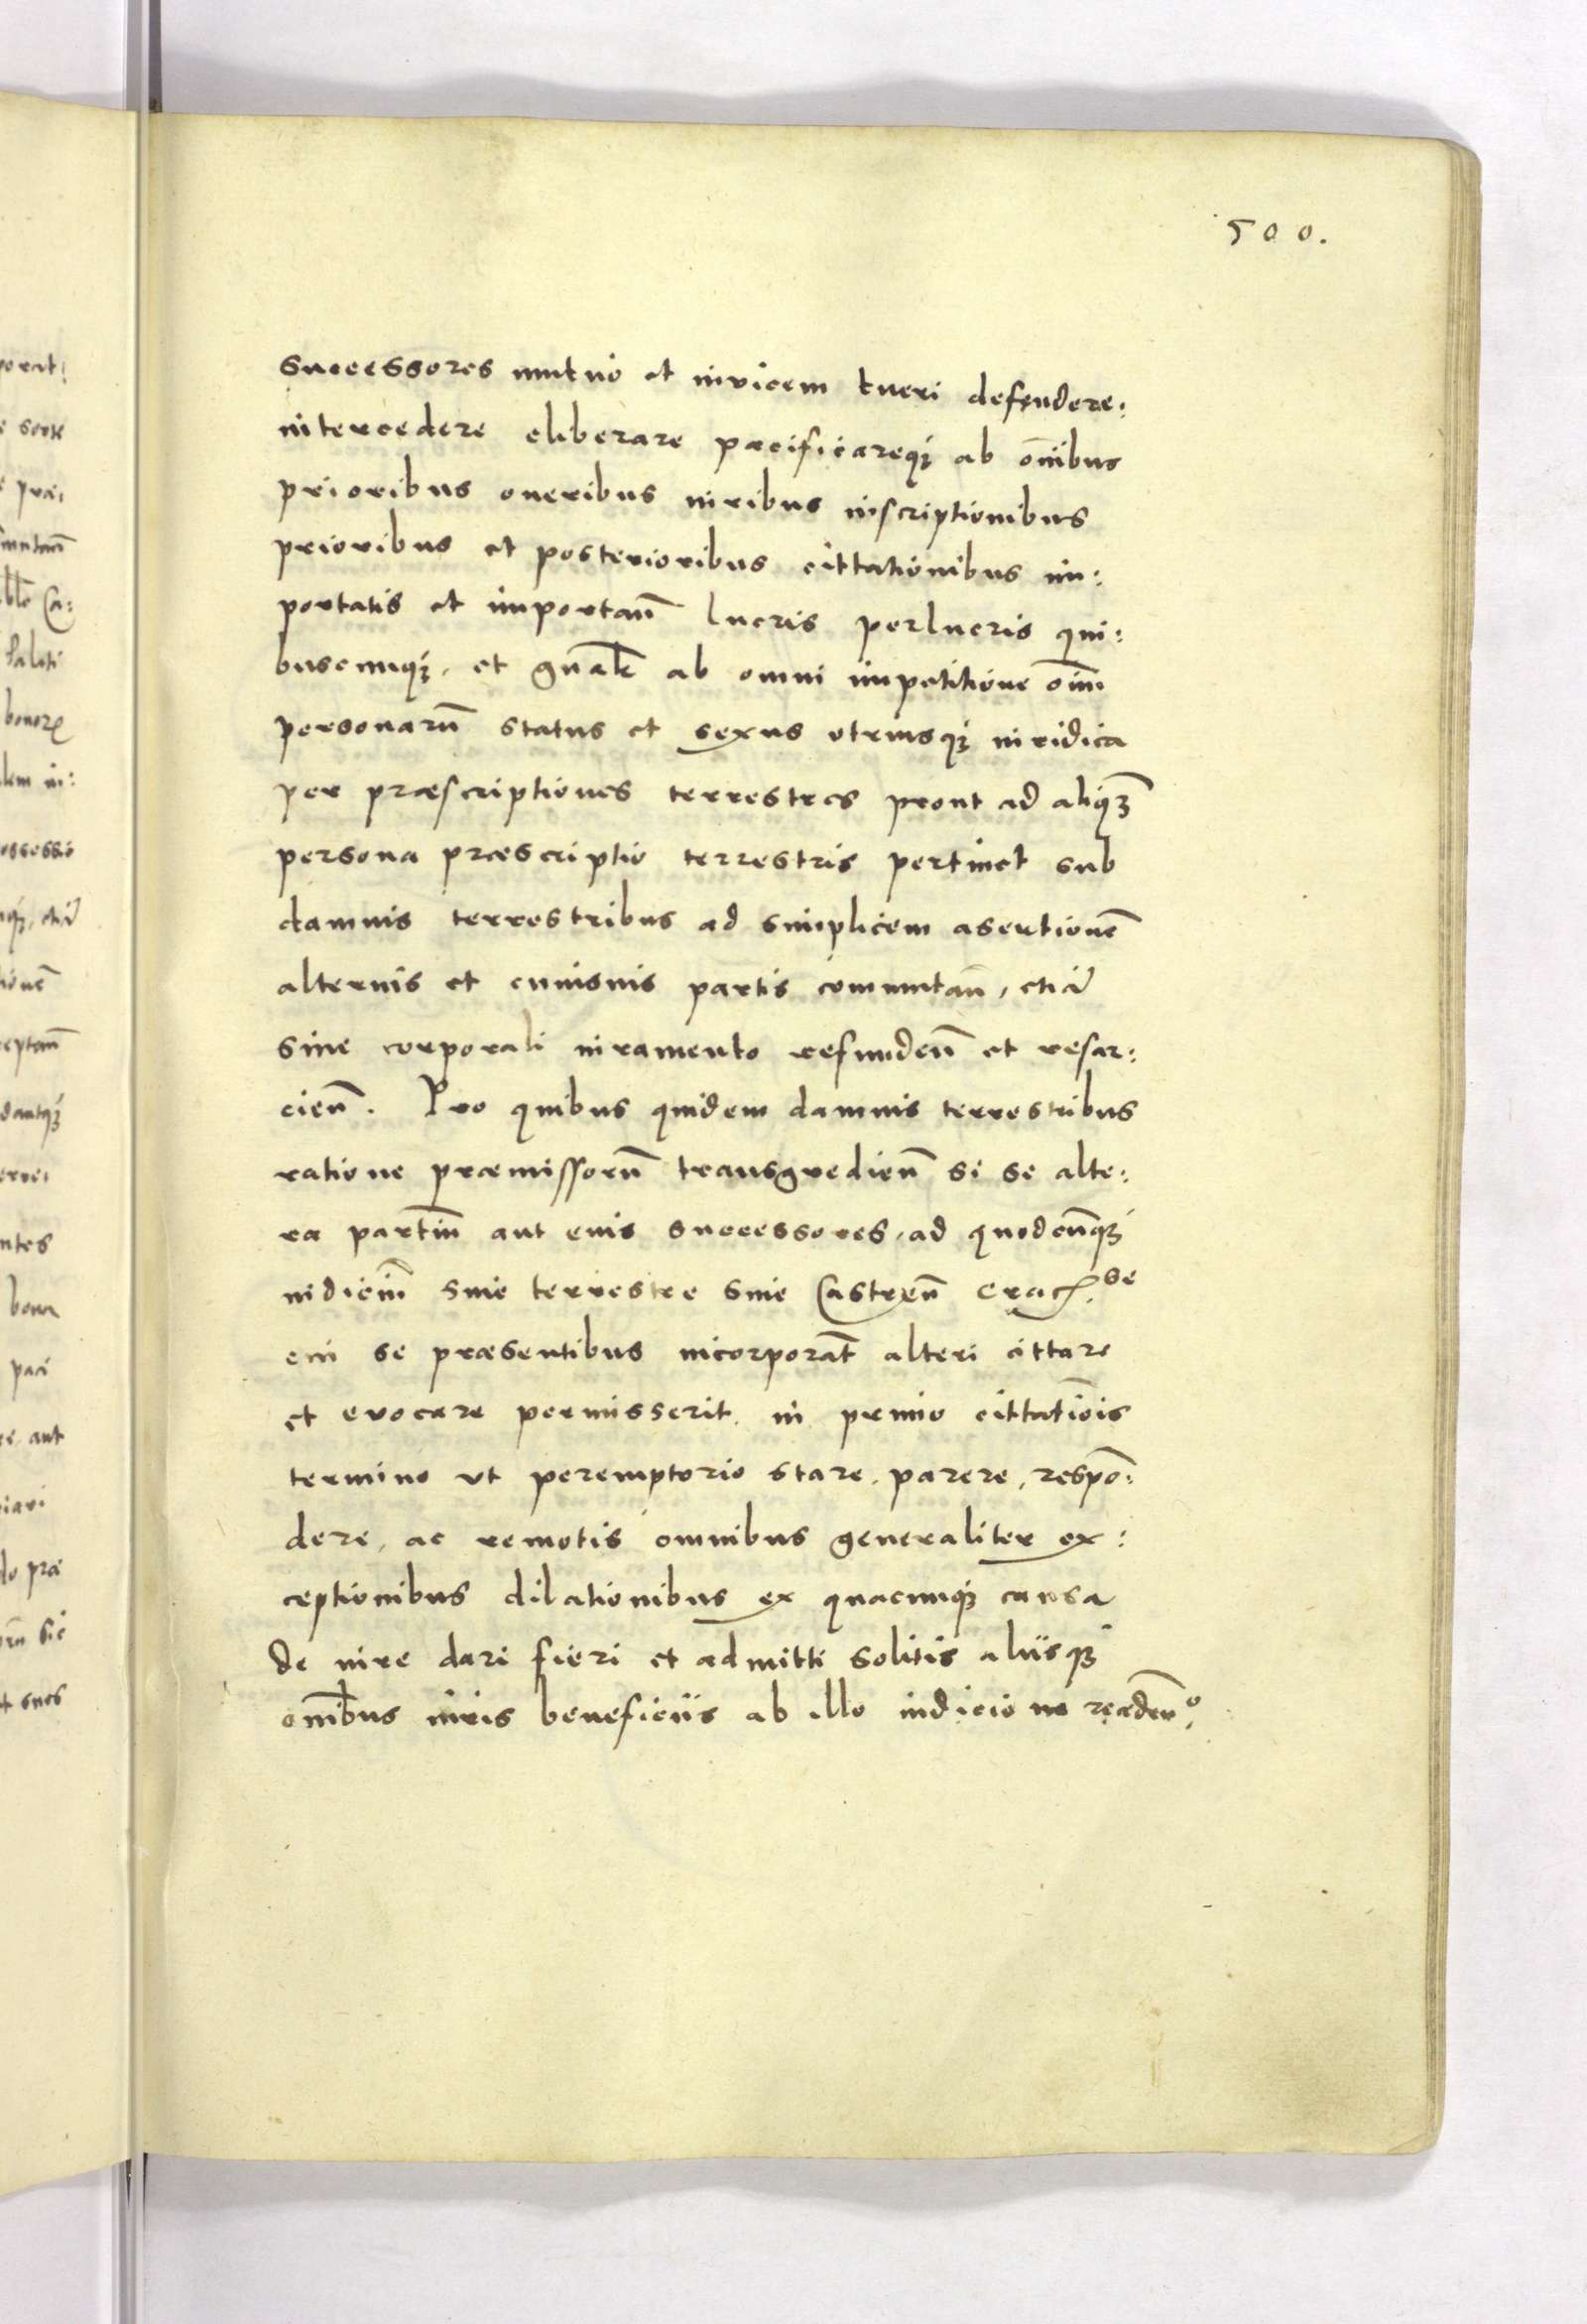 500.
successores mutuo et invicem tueri defendere:
intercedere eliberare pacificareq₃ ab o͞nibus
prioribus oneribus iuribus inscriptionibus
prioribus et posterioribus cittationibus im:
portatis et importan͞ lucris perlucris qui:
buscumq₃. et gn͞alr ab omni impetitione oim͞
personaru͞ status et sexus utriusq₃ iuridica
per præscriptiones terrestres prout ad aliq₃͞
persona præscriptio terrestris pertinet sub
damnis terrestribus ad simplicem asertione͞
alternis et cuiusvis partis commutan͞, etia͞
sine corporali iuramento refunden͞ et resar:
cien͞. Pro quibus quidem damnis terrestribus
ratione præmissoru͞ transgredien͞ si se alte:
ra partiu͞ aut eius successores, ad quodcu͞q₃
iudiciu͞ sive terrestre sive Castren͞ Crac. se
cui se præsentibus incorporat͞ alteri cittare
et evocare permisserit. in primo cittatio͞is
termino ut peremptorio stare, parere, respo͞:
dere, ac remotis omnibus generaliter ex:
ceptionibus dilationibus ex quacumq₃ causa
de iure dari fieri et admitti solitis aliisq₃
om͞ibus iuris beneficiis ab illo iudicio no
porat:
sorte
præ:
Ca:
bonor
ossessio
ntes
bona
paci
re, aut
do præ
sic